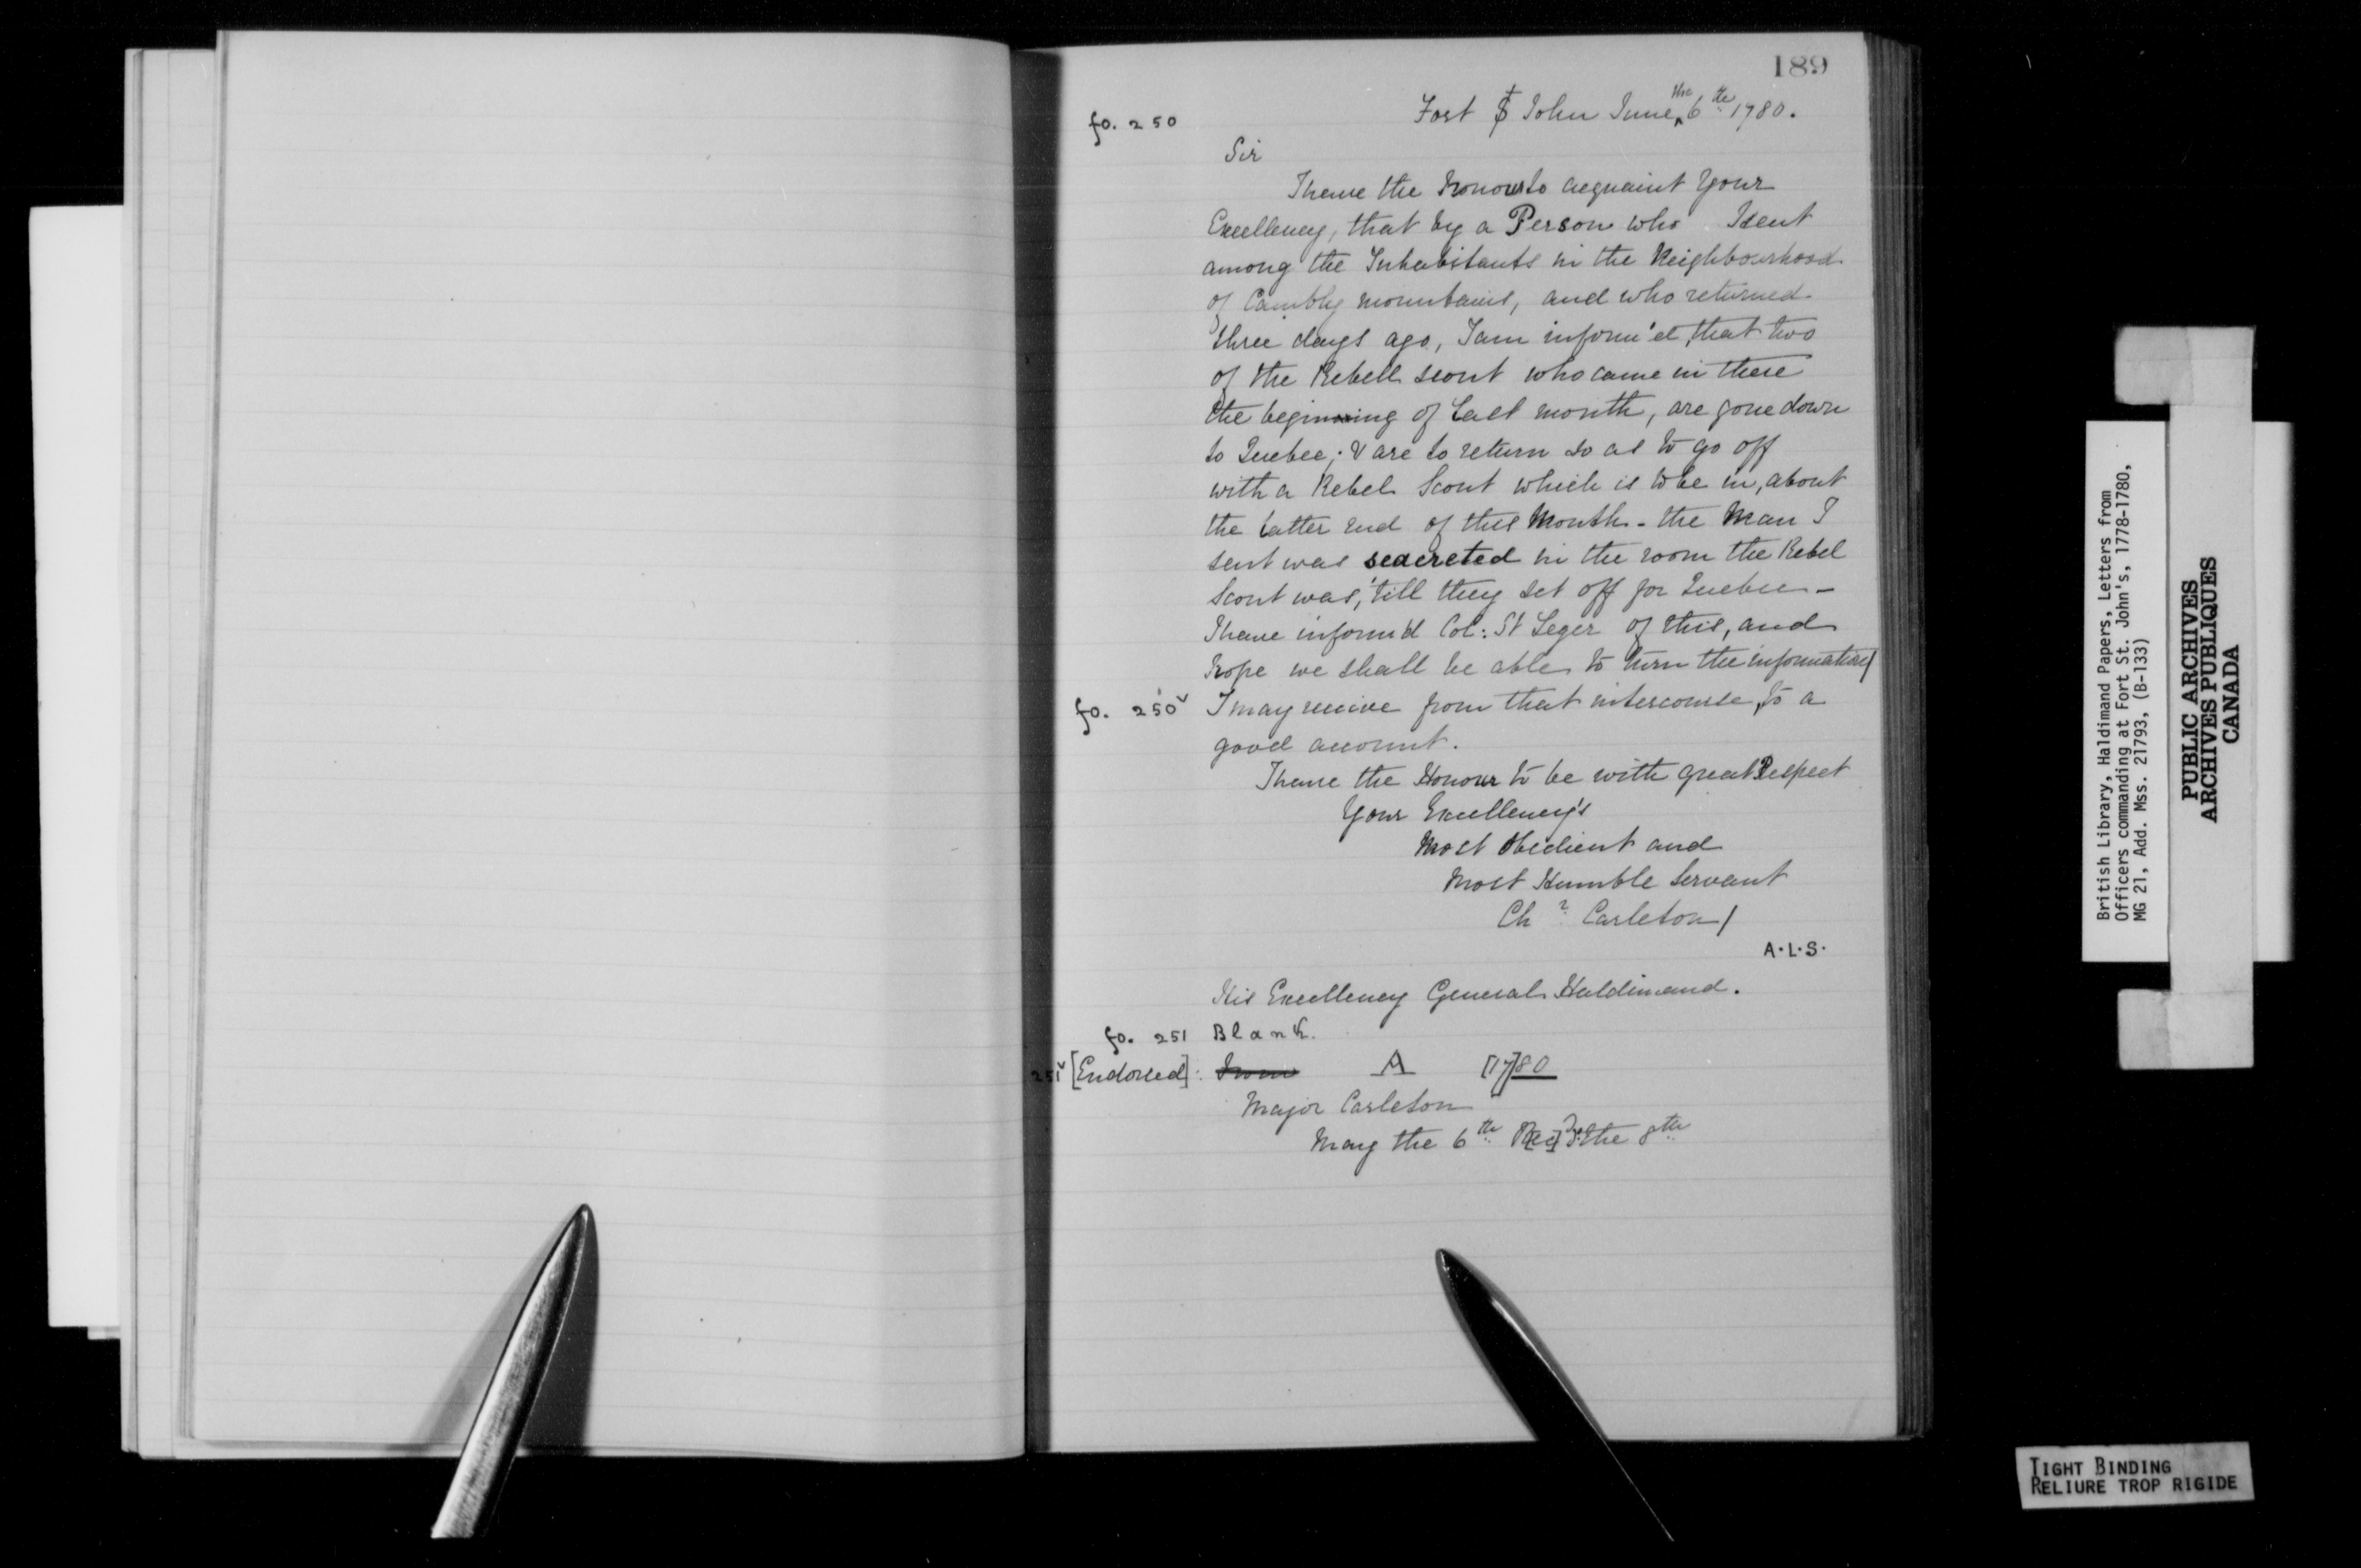 189
fo. 250
Fort St John June the 6th 1780.
Sir
I have the honour to acquaint Your
Excellency, that by a Person who I sent
among the Inhabitants in the Neighbourhood
of Cambly mountains, and who returned
three days ago, I am inform'd, that two
of the Rebell scout who came in there
the beginning of last month, are gone down
to Quebec; & are to return so as to go off
with a Rebel Scout which is to be in, about
the latter end of this Month - the Man I
sent was seacreted in the room the Rebel
Scout was, 'till they set off for Quebec -
I have inform'd Col: St Leger of this, and
hope we shall be able to turn the information/
fo. 250v I may receive from that intercourse, to a
good account.
I have the Honour to be with great Respect
Your Excellency's
Most Obedient and
Most Humble Servant
Chr Carleton/
A.L.S.
His Excellency General Haldimand.
fo. 251 Blank.
251v [Endorsed]: From A [17]80
Major Carleton
May the 6th R[ec]d the 8th
British Library, Haldimand Papers, Letters from
Officers commanding at Fort St. John's, 1778-1780,
MG 21, Add. Mss. 21793, (B-133)
PUBLIC ARCHIVES
ARCHIVES PUBLIQUES
CANADA
TIGHT BINDING
RELIURE TROP RIGIDE